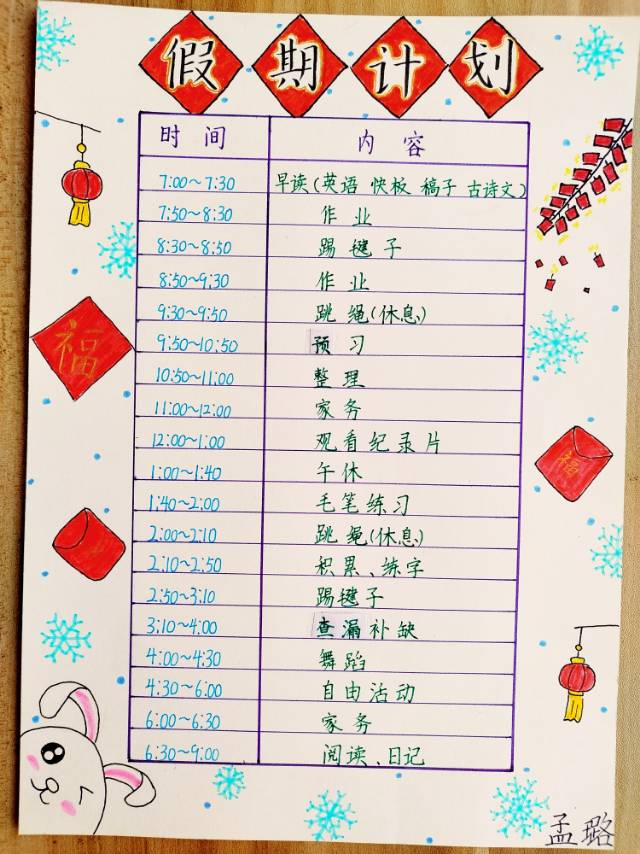 假期计划
时间 内容
7:00~7:30 早读(英语 快板 稿子 古诗文)
7:50~8:30 作业
8:30~8:50 踢毽子
8:50~9:30 作业
9:30~9:50 跳绳(休息)
9:50~10:50 预习
10:50~11:00 整理
11:00~12:00 家务
12:00~1:00 观看纪录片
1:00~1:40 午休
1:40~2:00 毛笔练习
2:00~2:10 跳绳(休息)
2:10~2:50 积累、练字
2:50~3:10 踢毽子
3:10~4:00 查漏补缺
4:00~4:30 舞蹈
4:30~6:00 自由活动
6:00~6:30 家务
6:30~9:00 阅读、日记
福
福
孟璐